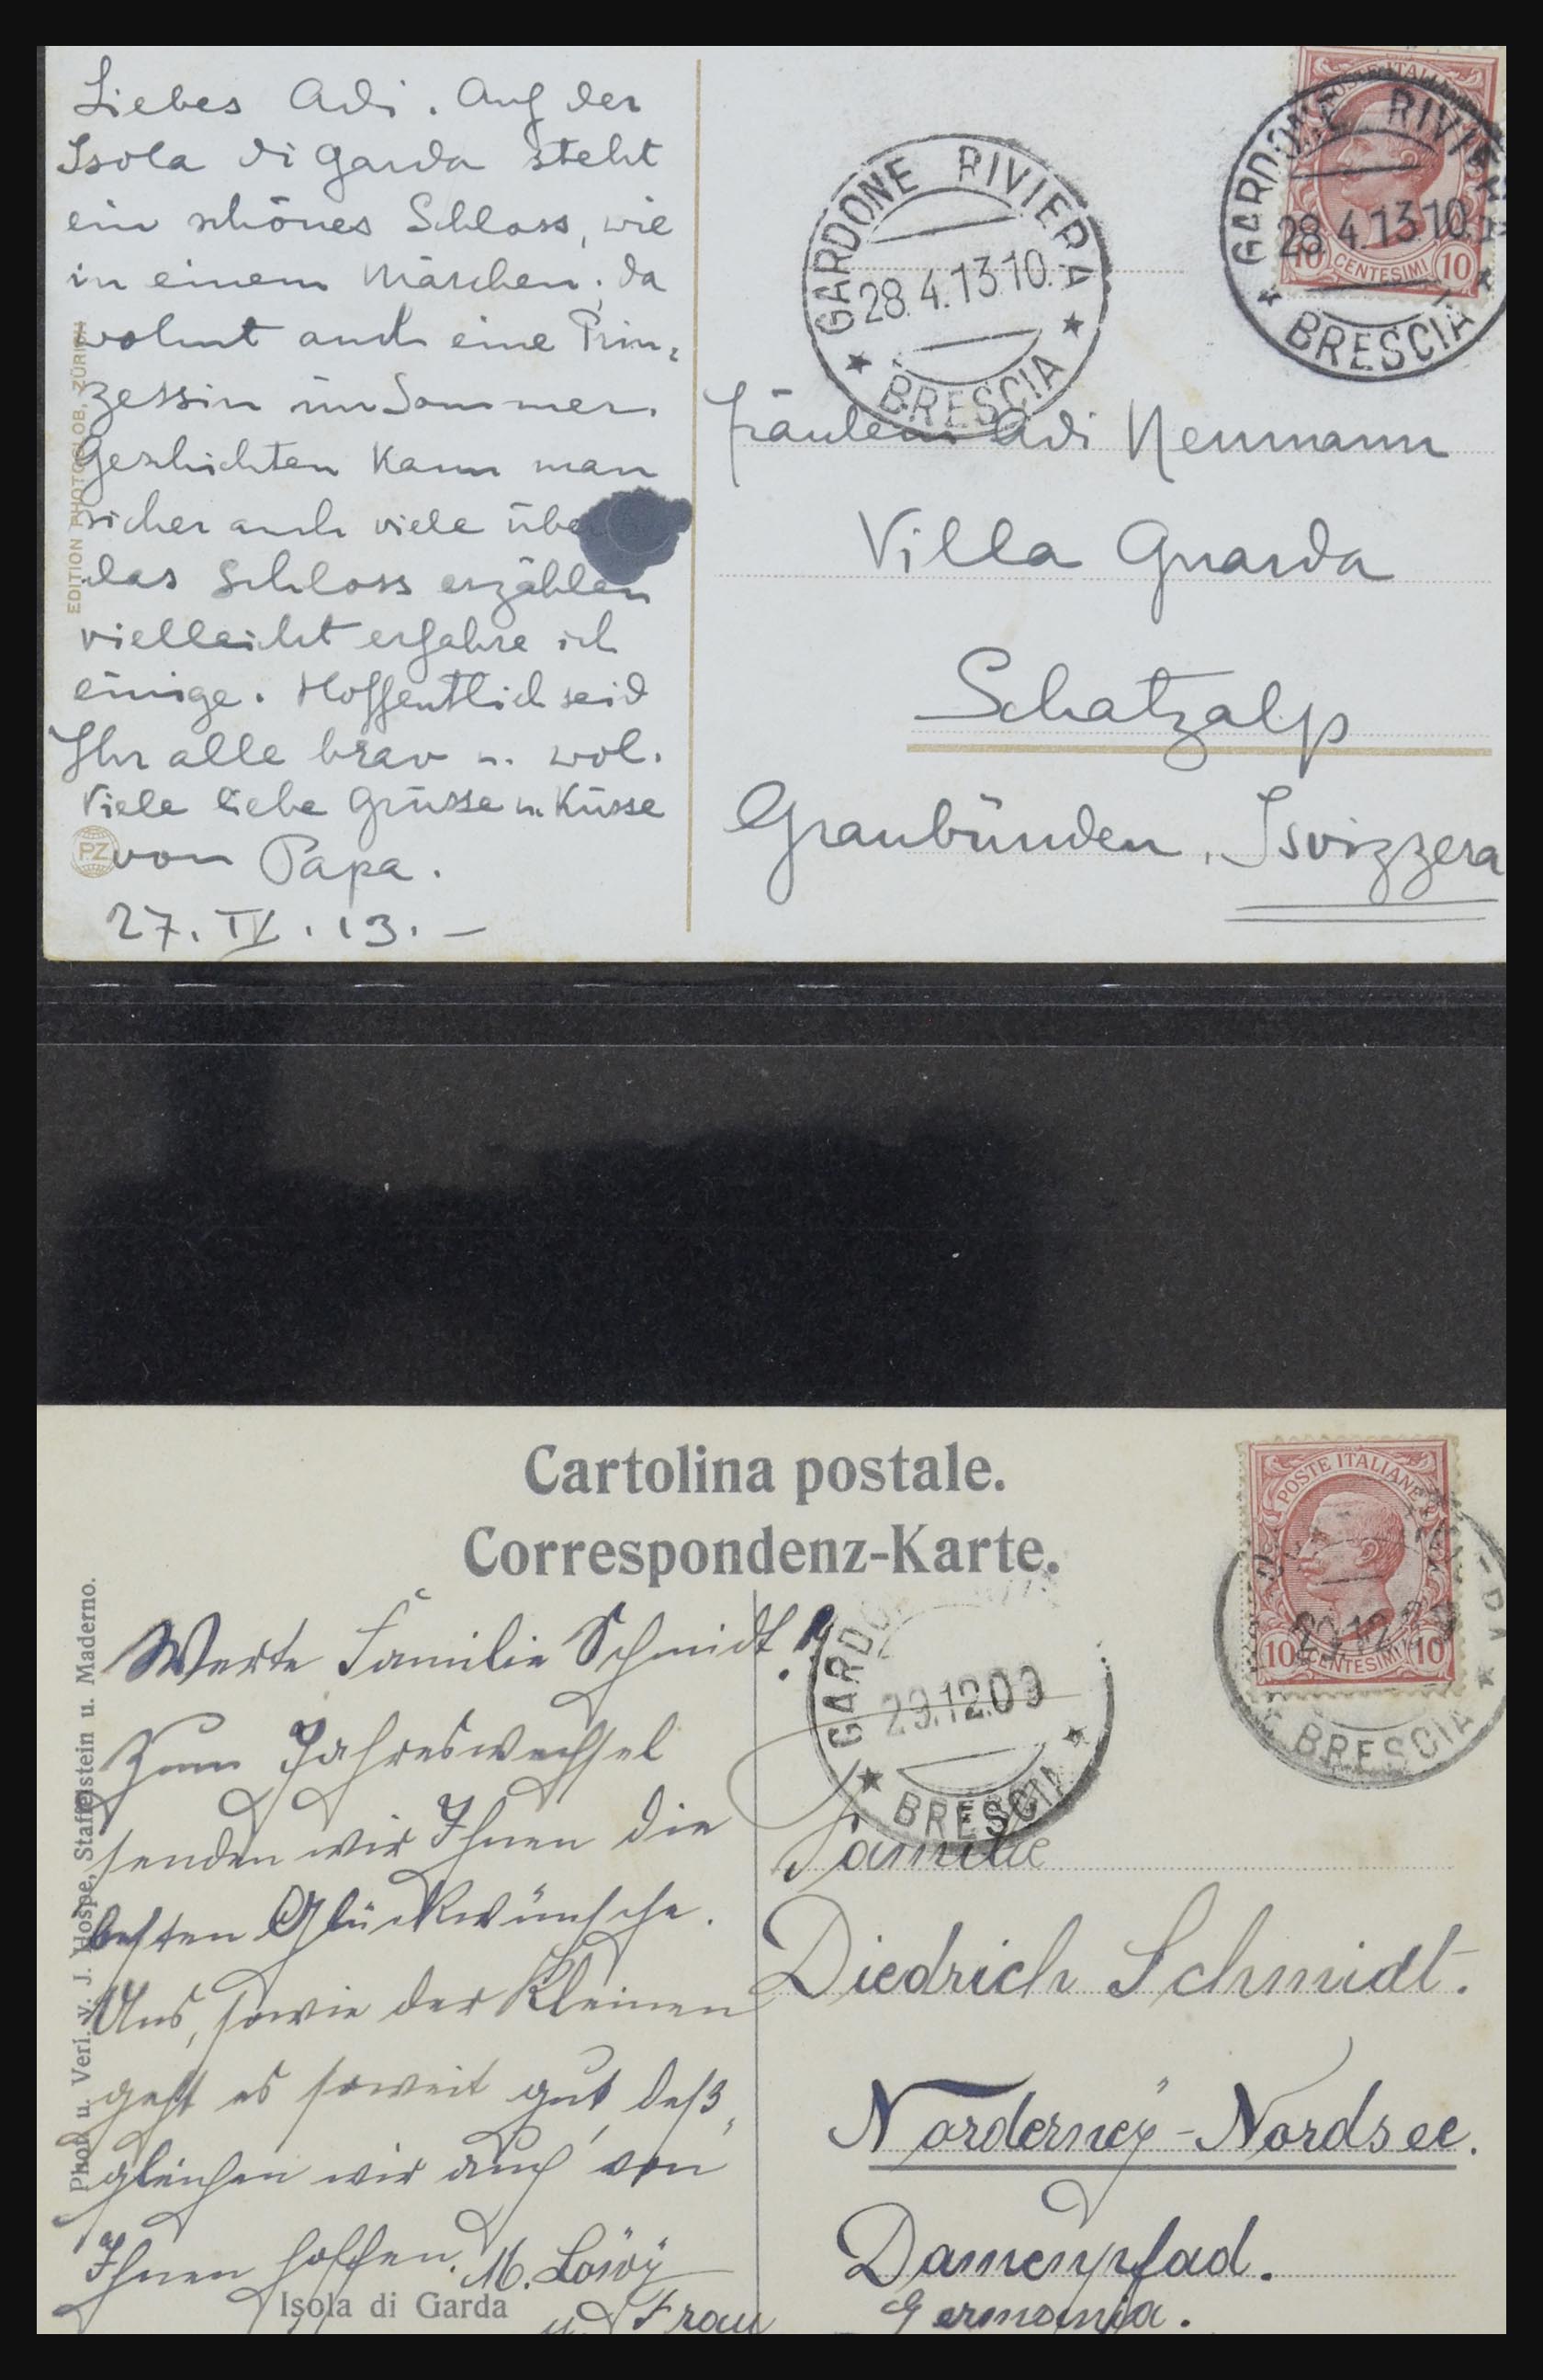 Liebes Adi. Auf der
Isola di Garda steht
ein schönes Schloss, wie
in einem Märchen; da
wohnt auch eine Prin=
zessin im Sommer.
Geschichten kann man
sicher auch viele über
das Schloss erzählen
vielleicht erfahre ich
einige. Hoffentlich seid
Ihr alle brav u. wol.
Viele liebe Grüsse u. Küsse
von Papa.
27. IV. 13. –
EDITION PHOTOGLOB, ZÜRICH
PZ
GARDONE RIVIERA
28.4.13 10.
BRESCIA
POSTE ITALIANE
10 CENTESIMI 10
GARDONE RIVIERA
28.4.13 10.
BRESCIA
Fräulein Adi Neumann
Villa Guarda
Schatzalp
Graubünden, Isvizzera
Cartolina postale.
Correspondenz-Karte.
Phot. u. Verl. v. J. Hospe, Staffelstein u. Maderno.
Werte Familie Schmidt!
Zum Jahreswechsel
senden wir Ihnen die
besten Glückwünsche.
Uns, sowie der Kleinen
geht es soweit gut, deß=
gleichen wir auch von
Ihnen hoffen. M. Löwy
u. Frau
Isola di Garda
POSTE ITALIANE
10 CENTESIMI 10
29.12.09
BRESCIA
GARDO
29.12.09
BRESCIA
Familie
Diedrich Schmidt.
Norderney-Nordsee.
Damenpfad.
Germania.